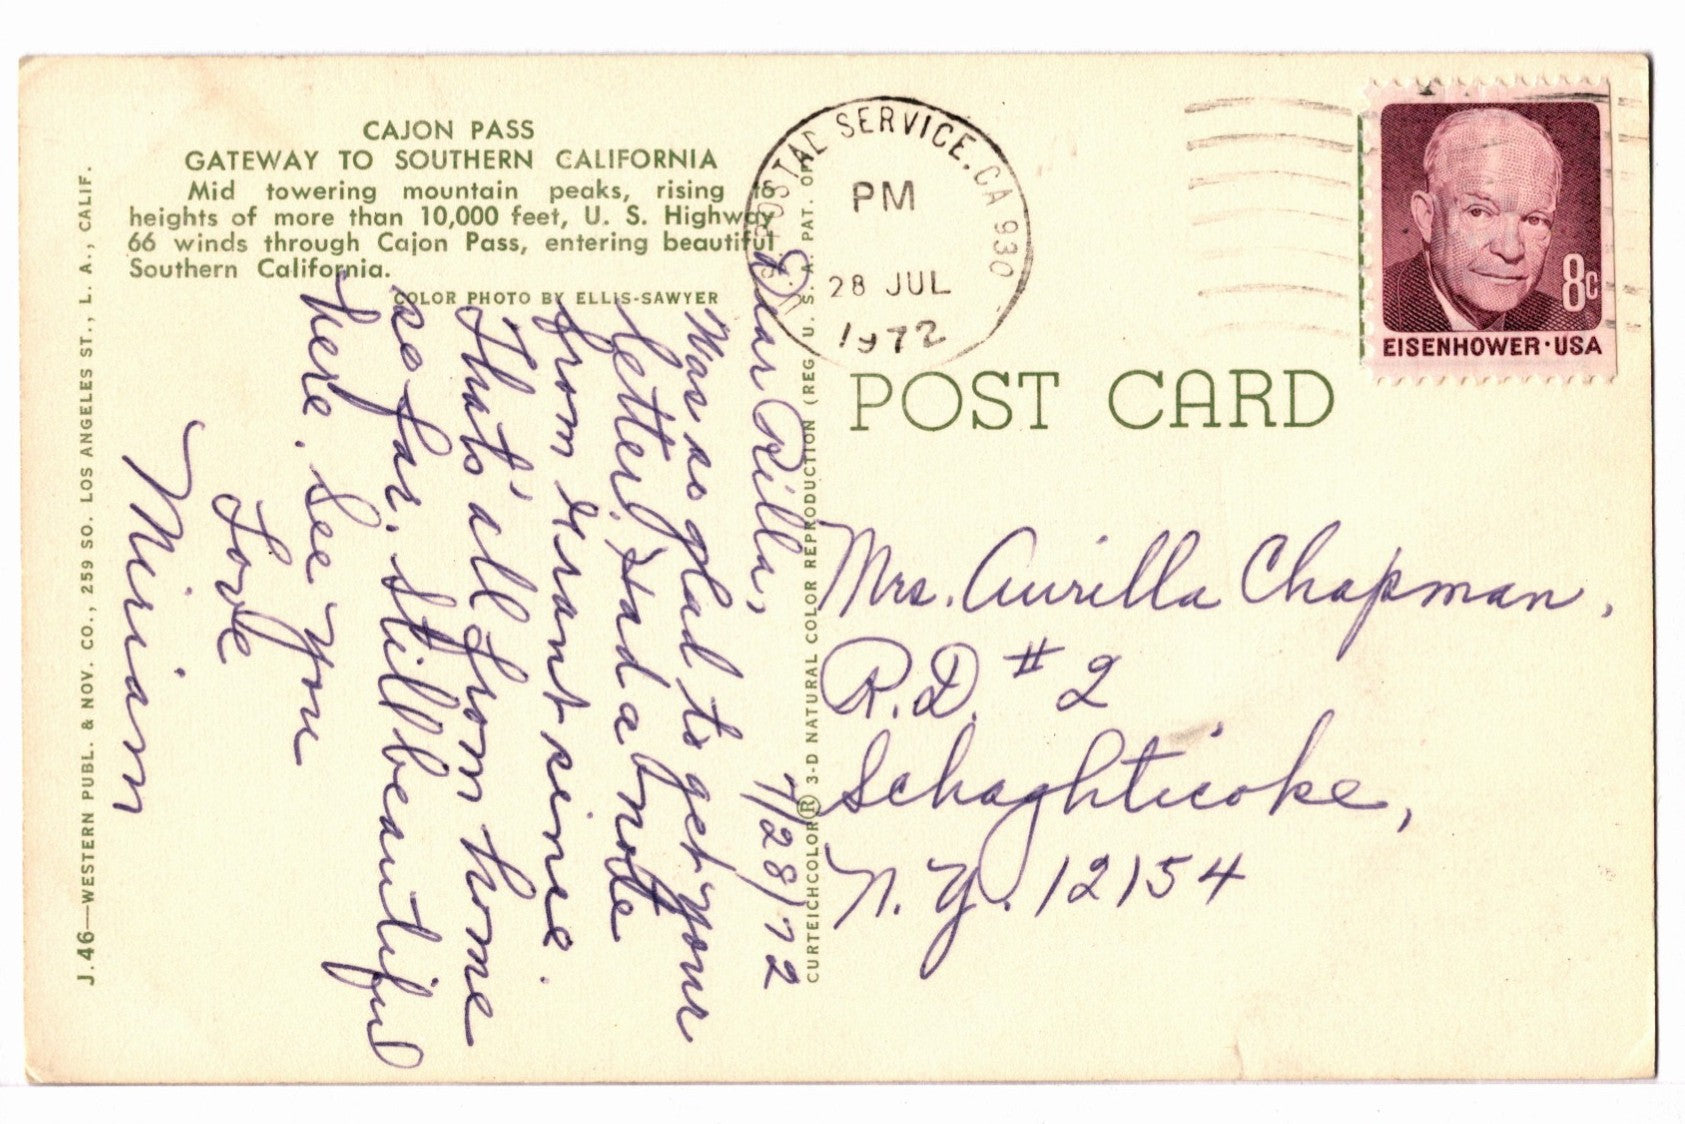 CAJON PASS
GATEWAY TO SOUTHERN CALIFORNIA
Mid towering mountain peaks, rising to
heights of more than 10,000 feet, U. S. Highway
66 winds through Cajon Pass, entering beautiful
Southern California.
COLOR PHOTO BY ELLIS-SAWYER
J.46—WESTERN PUBL. & NOV. CO., 259 SO. LOS ANGELES ST., L. A., CALIF.
7/28/72
Dear Rilla,
Was so glad to get your
letter. Had a note
from Grant since.
That's all from home
so far. Still beautiful
here. See you
Love
Miriam
CURTEICHCOLOR® 3-D NATURAL COLOR REPRODUCTION (REG. U. S. A. PAT. OFF.
U.S. POSTAL SERVICE, CA 930
PM
28 JUL
1972
8c
EISENHOWER·USA
POST CARD
Mrs. Aurilla Chapman,
R.D. #2
Schaghticoke,
N.Y. 12154